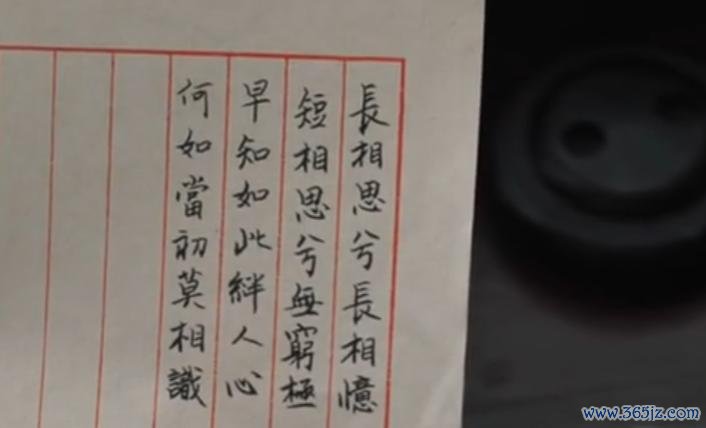 長相思兮長相憶
短相思兮無窮極
早知如此絆人心
何如當初莫相識
www.365jz.com